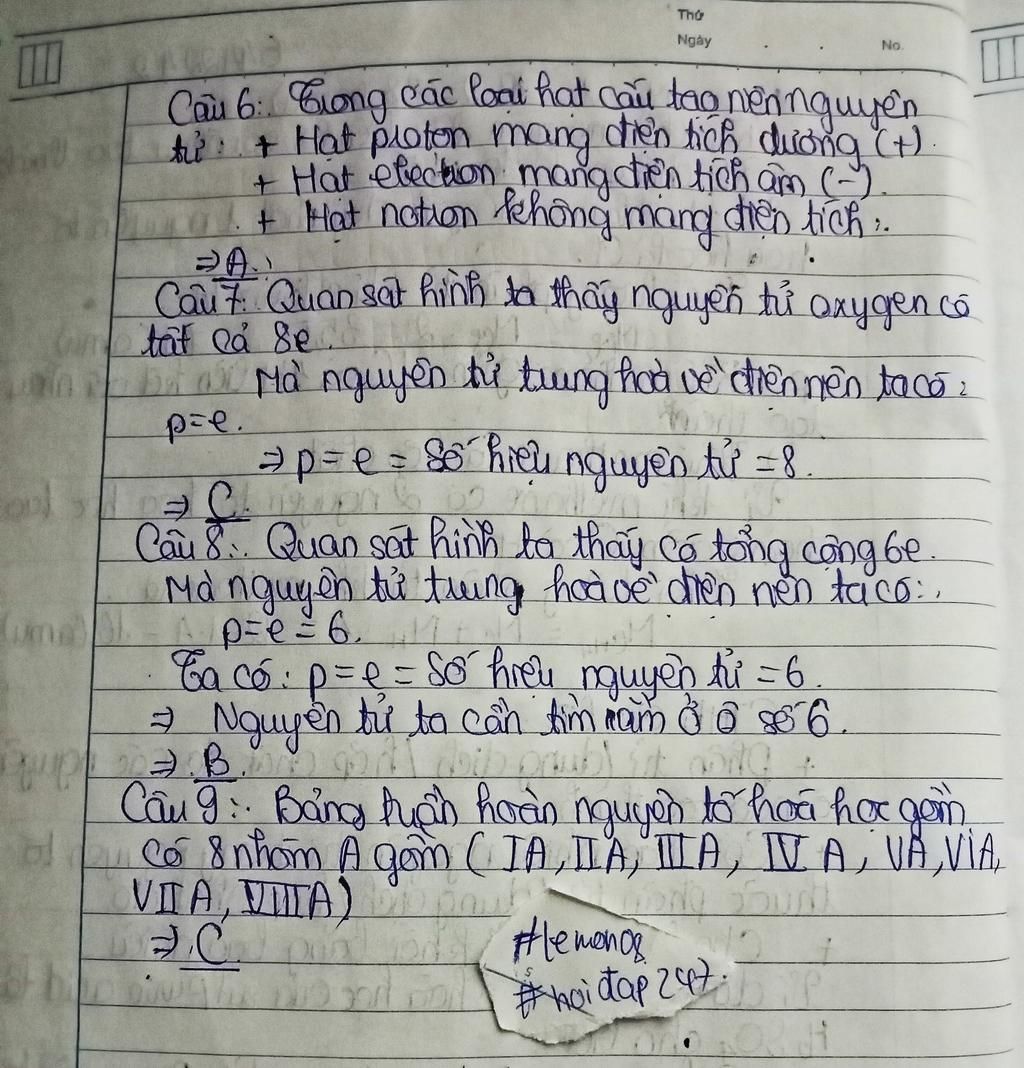 Thứ
Ngày . . No.
Câu 6: Trong các loại hạt cấu tạo nên nguyên
tử: + Hạt proton mang điện tích dương (+).
+ Hạt electron mang điện tích âm (-).
+ Hạt notron không mang điện tích.
⇒ A.
Câu 7: Quan sát hình ta thấy nguyên tử oxygen có
tất cả 8e.
Mà nguyên tử trung hoà về điện nên ta có:
p=e.
⇒ p = e = Số hiệu nguyên tử = 8.
⇒ C.
Câu 8: Quan sát hình ta thấy có tổng cộng 6e.
Mà nguyên tử trung hoà về điện nên ta có:
p=e=6.
Ta có: p=e=Số hiệu nguyên tử =6.
⇒ Nguyên tử ta cần tìm nằm ở ô số 6.
⇒ B.
Câu 9: Bảng tuần hoàn nguyên tố hoá học gồm
có 8 nhóm A gồm (IA, IIA, IIIA, IV A, VA, VIA,
VIIA, VIIIA)
⇒ C
#lemon08
#hoidap247.